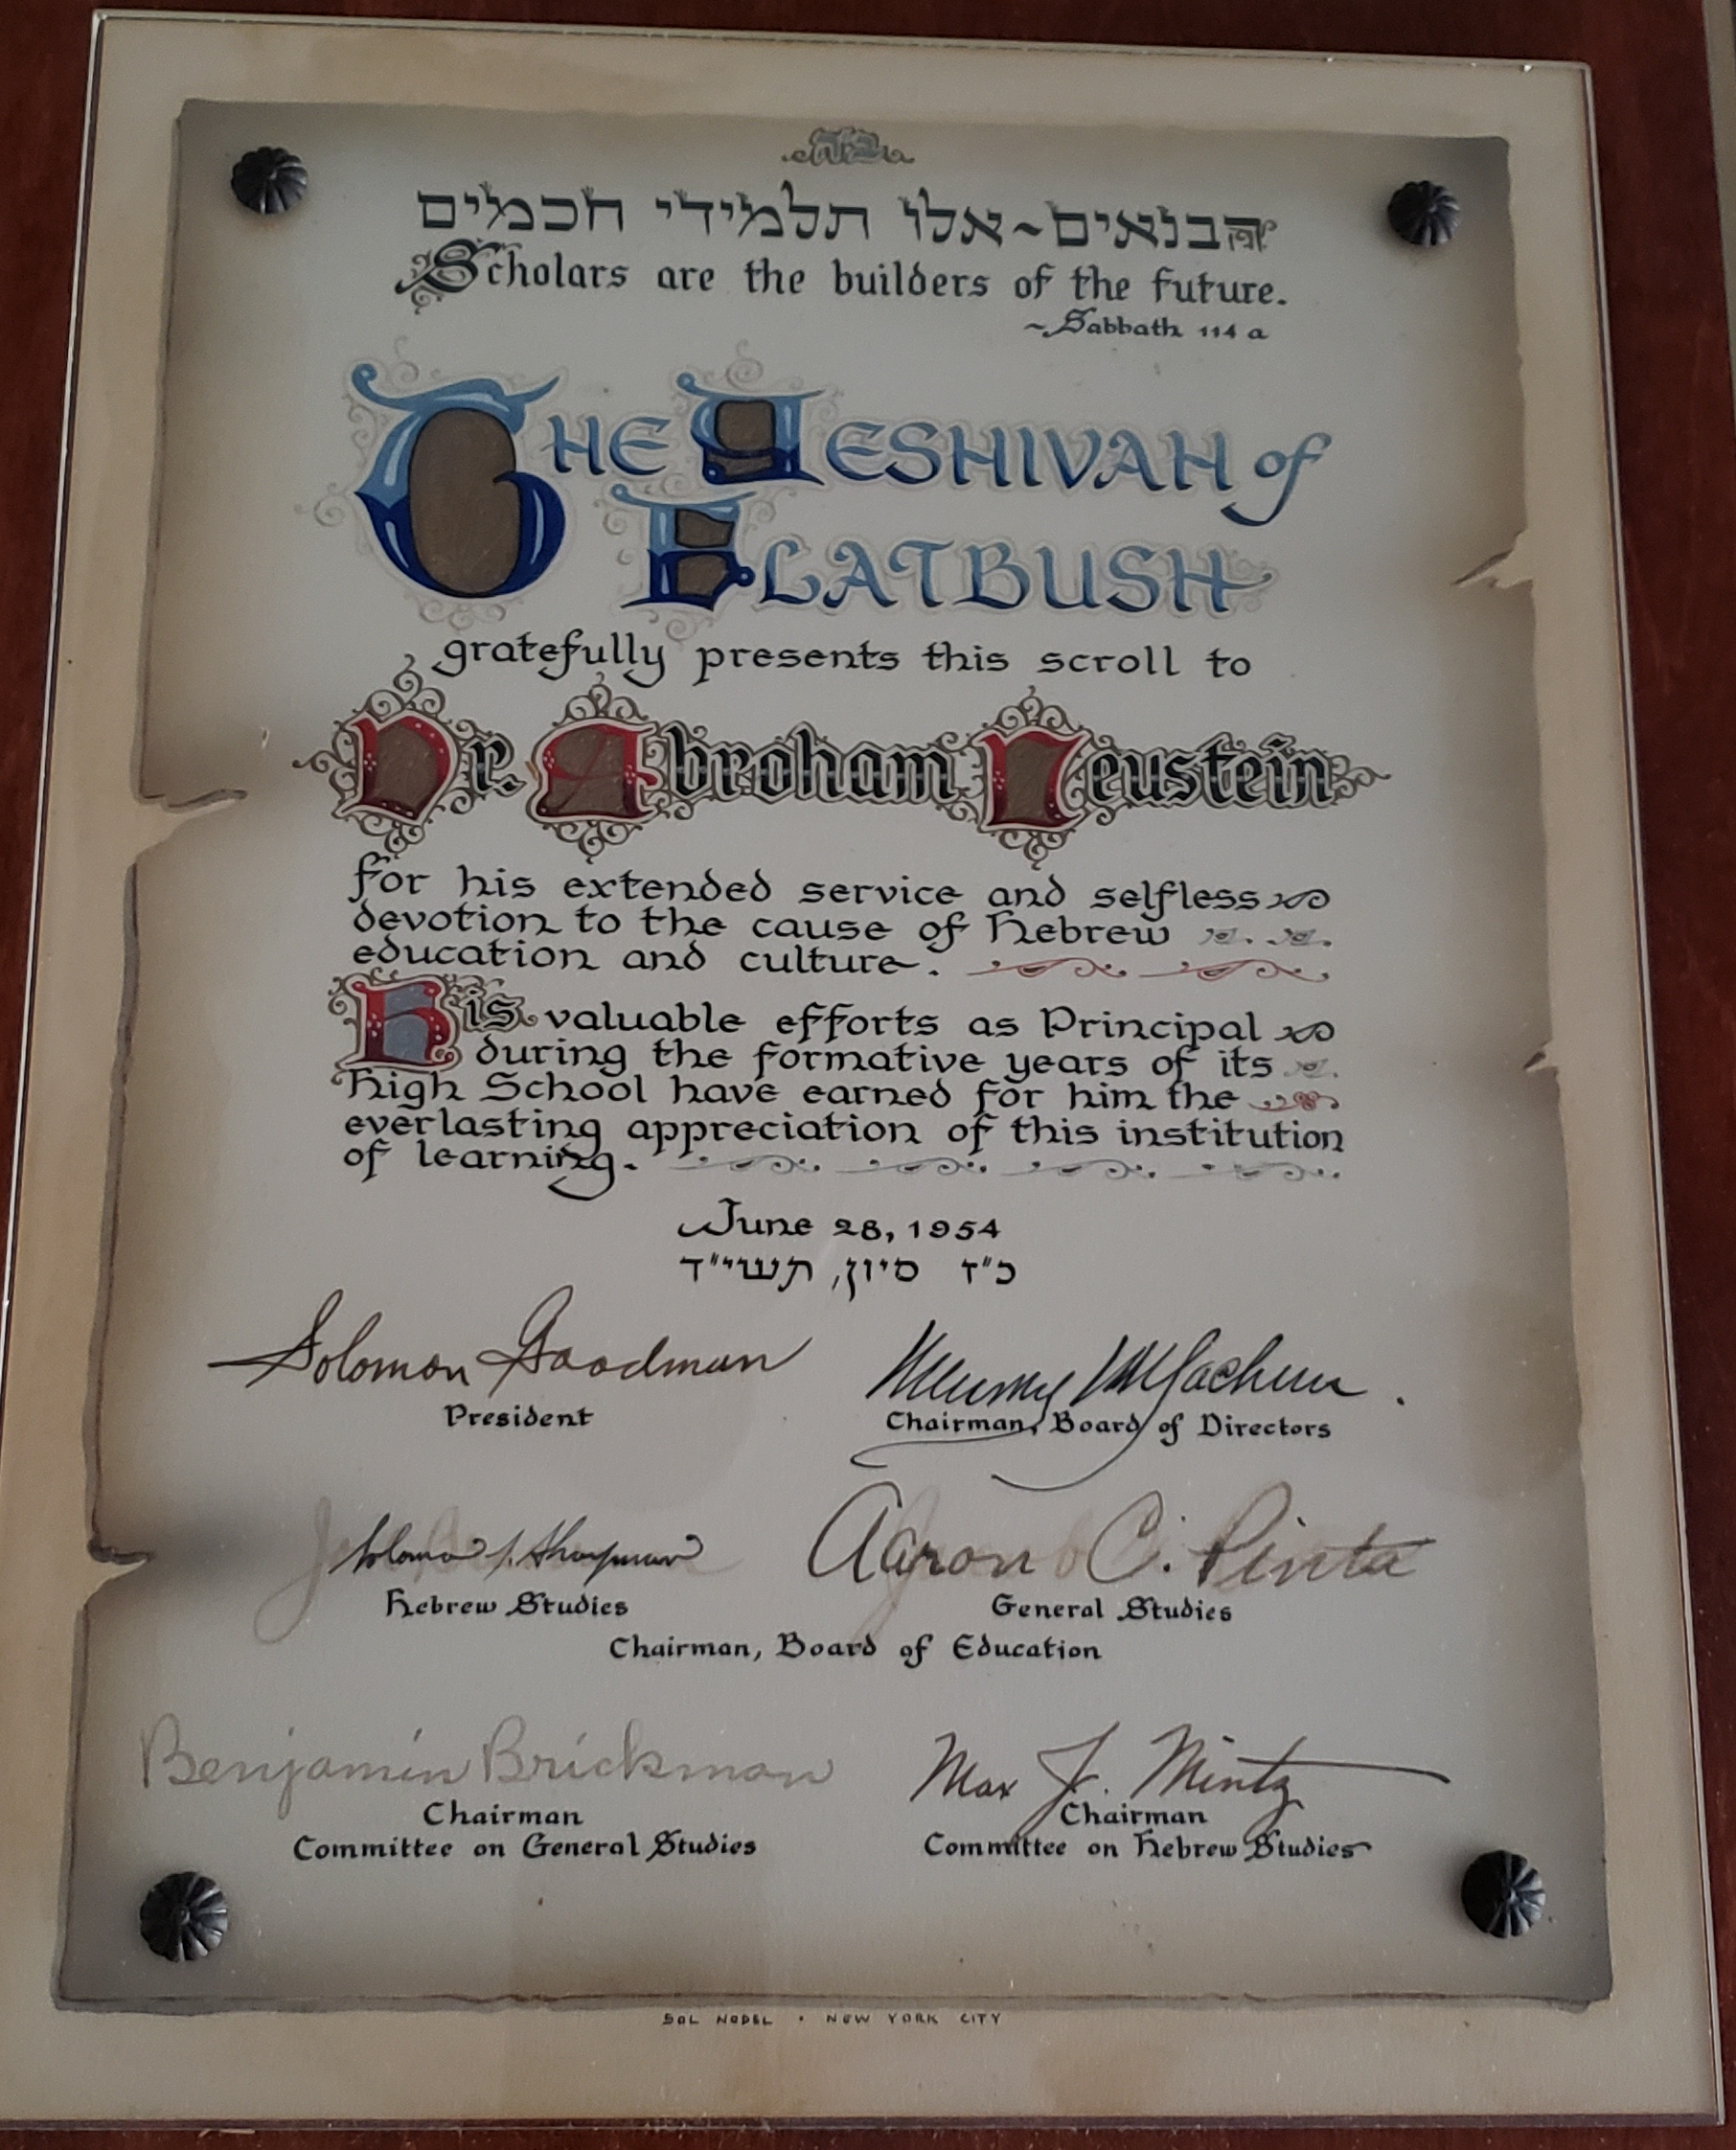 הבנאים~אלו תלמידי חכמים
Scholars are the builders of the future.
~Sabbath 114 a
THE YESHIVAH of
FLATBUSH
gratefully presents this scroll to
Dr. Abraham Neustein
for his extended service and selfless
devotion to the cause of Hebrew
education and culture.
His valuable efforts as Principal
during the formative years of its
High School have earned for him the
everlasting appreciation of this institution
of learning.
June 28, 1954
כ"ז סיון, תשי"ד
Solomon Goodman
President
Chairman, Board of Directors
Hebrew Studies
Aaron C. Pinta
General Studies
Chairman, Board of Education
Benjamin Brickman
Chairman
Committee on General Studies
Max J. Mintz
Chairman
Committee on Hebrew Studies
SOL NODEL • NEW YORK CITY